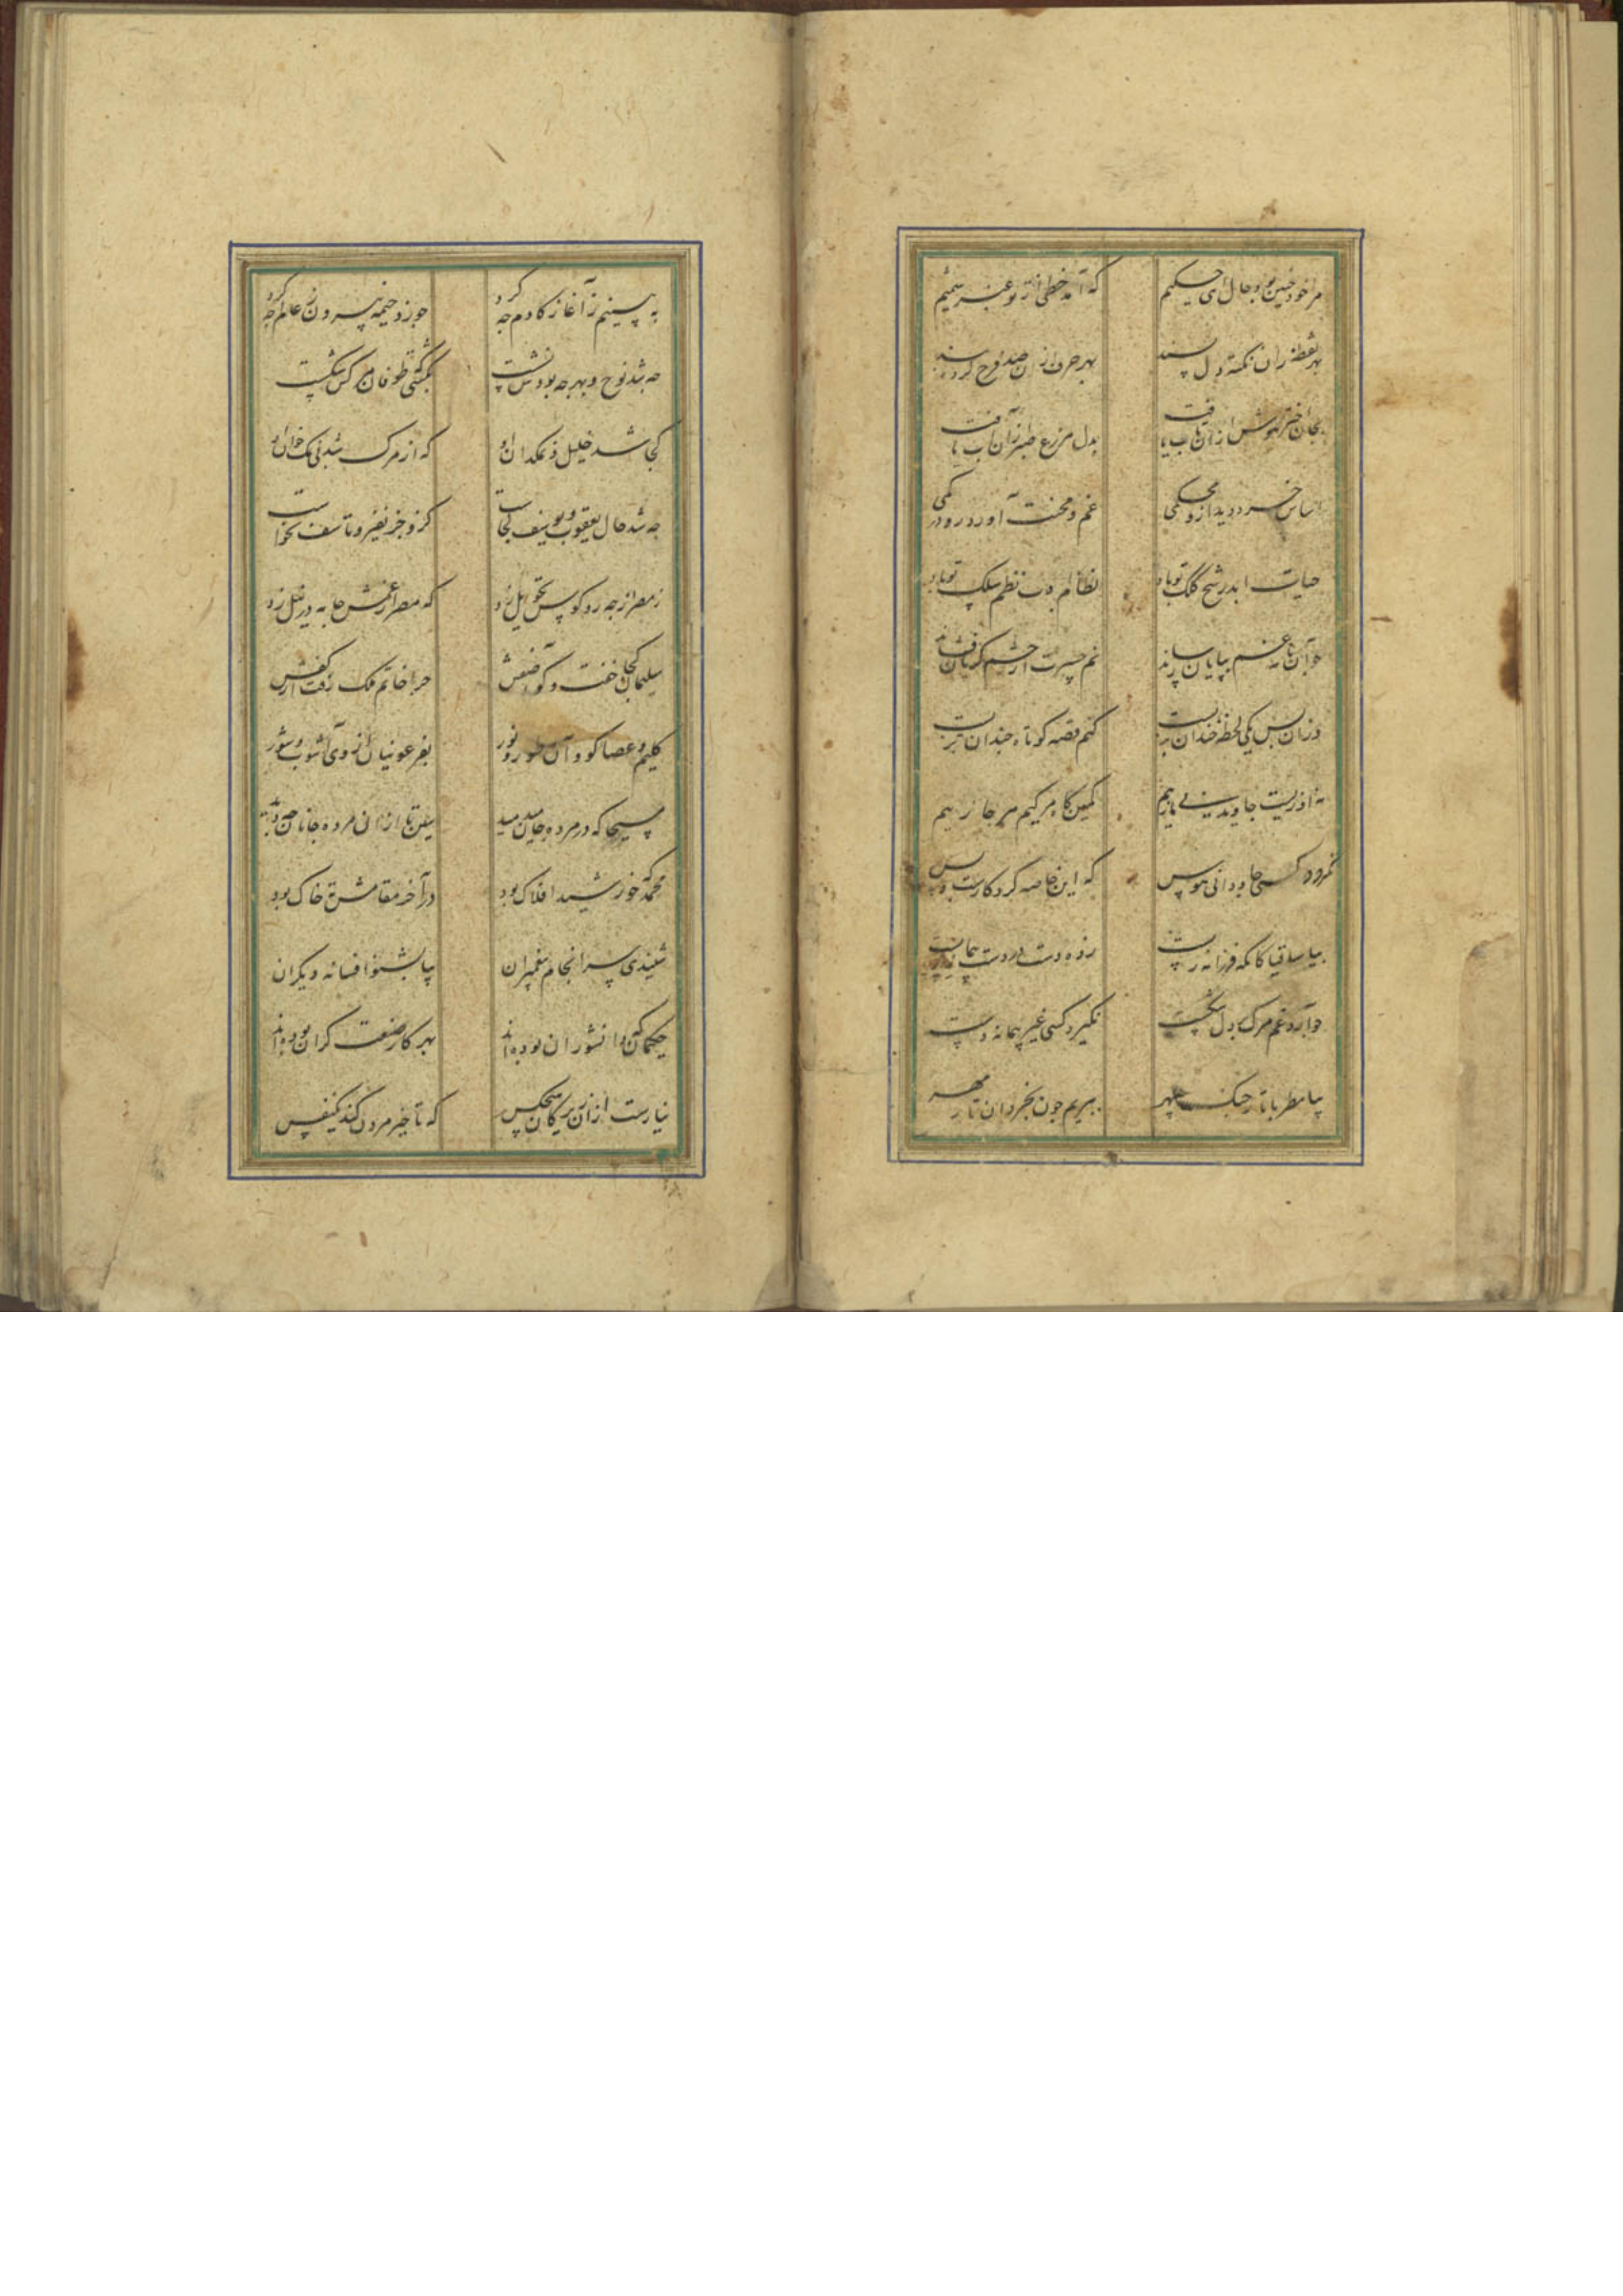 مرا خود چنین بود حال ای حکیم که آمد خطی از تو عنبر شمیم
بهر نقطه زان نکته دل پسند بهر حرف از آن صد فرح کرده بند
بجان اختر هوش از آن تاب یافت بدل مزرع طبع از آن آب یافت
اساس خرد دید ازو محکمی غم و محنت آورد رو در کمی
حیات ابد رشح کلک تو باد نظام ادب نظم سلک تو باد
چو آن نامه غم بپایان رساند نم حسرت از چشم گریان فشاند
وزان پس یکی لحظه خندان نزیست کنم قصه کوتاه چندان نزیست
نه از زیست جاوید نی یار هم کمین گاه مرگیم هر جا رهیم
نمرود کسی جاودانی هوس که این خاصه کردگارست و بس
بیا ساقیا کانکه فرزانه زیست زده دست در دست پیمانه زیست
چو آرد غم مرگ بر دل شکست نگیرد کسی غیر پیمانه دست
بیا مطربا تا ز چنگ سپهر ببریم چون بخردان تار مهر
به بینیم ز آغاز کادم چه کرد چو زد خیمه بیرون ز عالم چه کرد
چه شد نوح و بهر چه بودش نشست بکشتی چو طوفان مرگش شکست
کجا شد خلیل و نمکدان او که از مرگ شد بی نمک خوان او
چه شد حال یعقوب و یوسف کجاست کزو جز نفیر و تاسف نخاست
ز مصر از چه رو کوس تحویل زد که مصر از غمش جامه در نیل زد
سلیمان کجا خفت و کو آصفش چرا خاتم ملک رفت از کفش
کلیم و عصا کو و آن طور و نور بفرعونیان از وی آشوب و شور
مسیحا که در مرده جان میدمید
محمد که خورشید افلاک بود در آخر مقامش ته خاک بود
شنیدی سرانجام پیغمبران بیا بشنو افسانه دیگران
حکیمان که دانشوران بوده‌اند بهر کار صنعت گران بوده‌اند
نیارست از آن زیرکان هیچکس که تاخیر مردن کند یک نفس